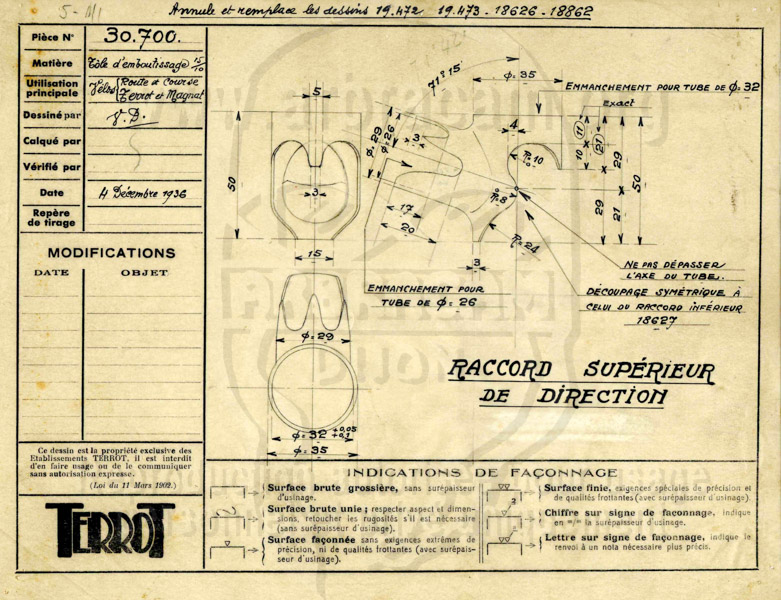 5 - M1
Annule et remplace les dessins 19.472 19.473 - 18626 - 18862
Pièce N° 30.700.
Matière Tôle d'emboutissage 15/10
Utilisation principale Vélos { Route et Course
Terrot et Magnat
Dessiné par V. D.
Calqué par
Vérifié par
Date 4 Décembre 1936
Repère de tirage
MODIFICATIONS
DATE OBJET
Ce dessin est la propriété exclusive des
Etablissements TERROT, il est interdit
d'en faire usage ou de le communiquer
sans autorisation expresse.
(Loi du 11 Mars 1902.)
TERROT
71° 15'
ϕ = 35
EMMANCHEMENT POUR TUBE DE ϕ = 32
exact
5
50
3
15
ϕ = 29
ϕ = 26
3
4
R = 10
R = 8
R = 24
17
20
3
11
10
21
29
29
21
50
NE PAS DÉPASSER
L'AXE DU TUBE.
DÉCOUPAGE SYMÉTRIQUE À
CELUI DU RACCORD INFÉRIEUR
18627
EMMANCHEMENT POUR
TUBE DE ϕ = 26
ϕ = 29
ϕ = 32 +0,05 +0,1
ϕ = 35
RACCORD SUPÉRIEUR
DE DIRECTION
INDICATIONS DE FAÇONNAGE
Surface brute grossière, sans surépaisseur
d'usinage.
Surface brute unie; respecter aspect et dimen-
sions, retoucher les rugosités s'il est nécessaire
(sans surépaisseur d'usinage).
Surface façonnée sans exigences extrêmes de
précision, ni de qualités frottantes (avec surépais-
seur d'usinage).
Surface finie, exigences spéciales de précision et
de qualités frottantes (avec surépaisseur d'usinage).
2
Chiffre sur signe de façonnage, indique
en m/m la surépaisseur d'usinage.
Lettre sur signe de façonnage, indique le
renvoi à un nota nécessaire plus précis.